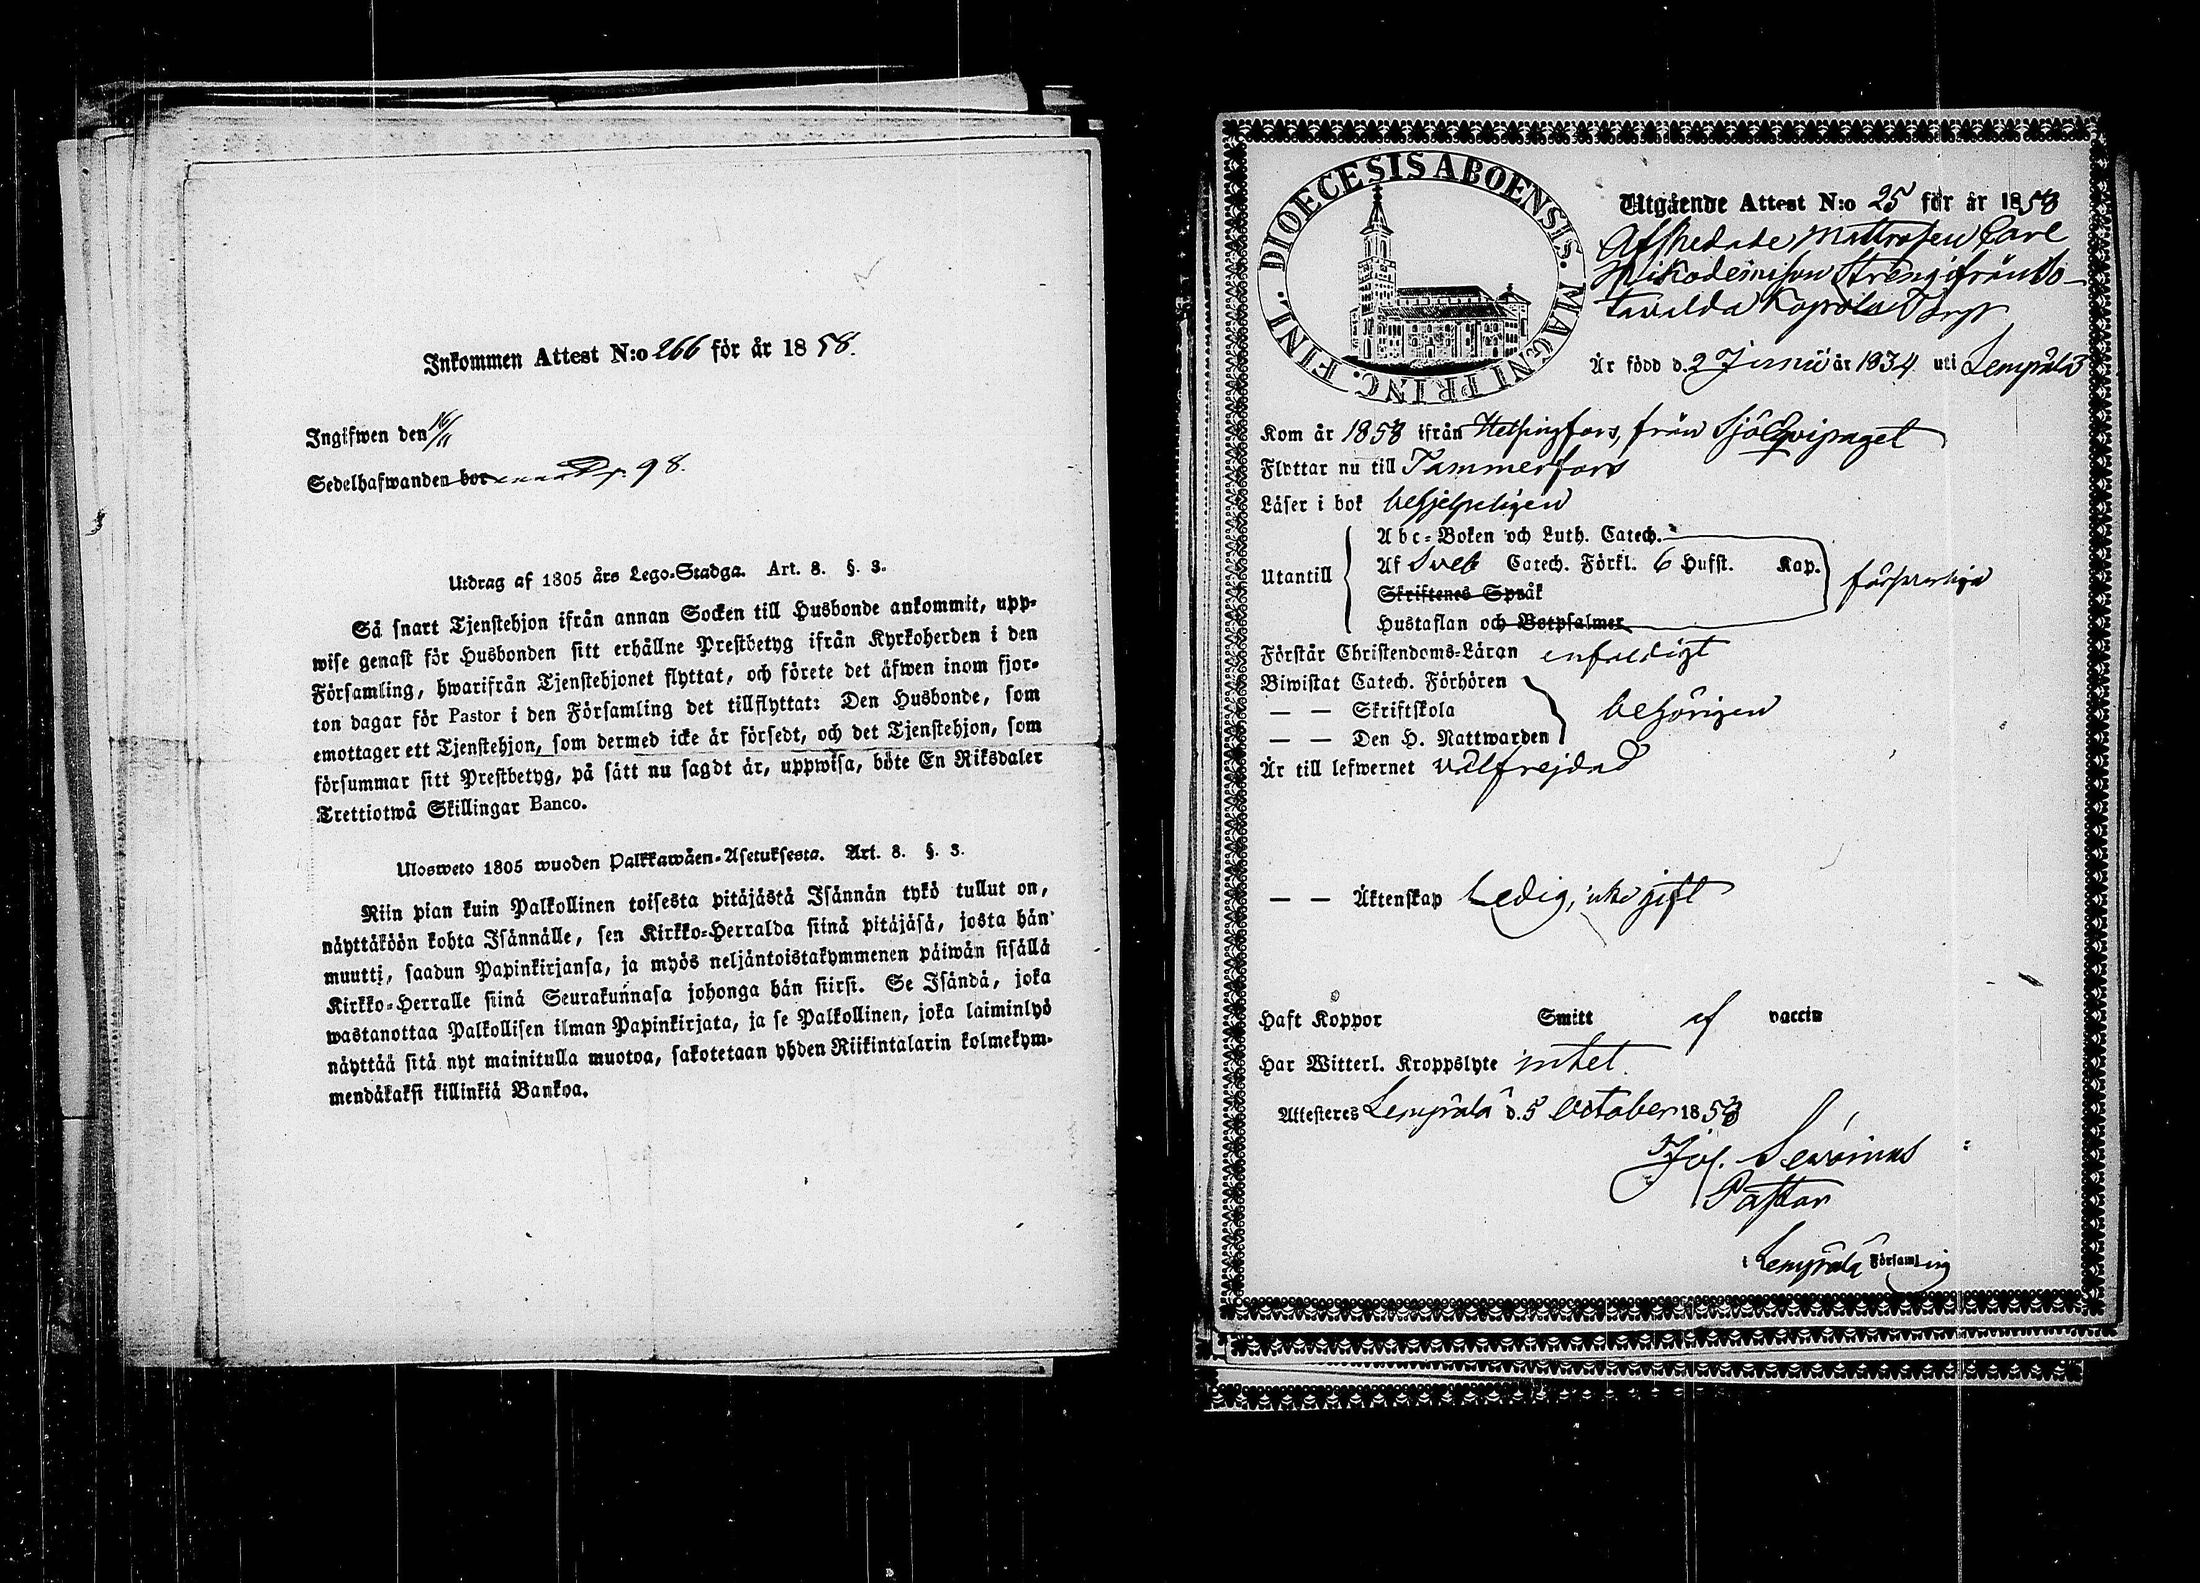 Inkommen Attest N:o 266 för år 1858.
Ingifwen den 16/11
Sedelhafwanden bor p. 98.
Utdrag af 1805 års Lego-Stadga. Art. 8. §. 3.
Så snart Tjenstehjon ifrån annan Socken till Husbonde ankommit, upp-
wise genast för Husbonden sitt erhållne Prestbetyg ifrån Kyrkoherden i den
Församling, hwarifrån Tjenstehjonet flyttat, och förete det äfwen inom fjor-
ton dagar för Pastor i den Församling det tillflyttat: Den Husbonde, som
emottager ett Tjenstehjon, som dermed icke är försedt, och det Tjenstehjon, som
försummar sitt Prestbetyg, på sätt nu sagdt är, uppwisa, böte En Riksdaler
Trettiotwå Skillingar Banco.
Ulosweto 1805 wuoden Palkkawäen-Asetuksesta. Art. 8. §. 3.
Niin pian kuin Palkollinen toisesta pitäjästä Isännän tykö tullut on,
näyttäköön kohta Isännälle, sen Kirkko-Herralda siinä pitäjäsä, josta hän
muutti, saadun Papinkirjansa, ja myös neljäntoistakymmenen päiwän sisällä
Kirkko-Herralle siinä Seurakunnasa johonga hän siirsi. Se Isändä, joka
wastanottaa Palkollisen ilman Papinkirjata, ja se Palkollinen, joka laiminlyö
näyttää sitä nyt mainitulla muotoa, sakotetaan yhden Riikintalarin kolmekym-
mendäkaksi killinkiä Bankoa.
DIOECESIS ABOENSIS. MAGNI PRINC. FINL.
Utgående Attest N:o 25 för år 1858
Afskedade Mattrosen Carl
Nikodemisson Streng ifrån Bo-
tavalda Kopola Torp
Är född d. 2 Junii år 1834 uti Lempälä
Kom år 1858 ifrån Helsingfors, från Sjö Eqvipaget
Flyttar nu till Tammerfors
Läser i bok behjelpeligen
Utantill
Abc-Boken och Luth. Catech.
Af Sveb Catech. Förkl. 6 Hufst. Kap.
Skriftenes Språk
Hustaflan och Botpsalmer
försvarliga
Förstår Christendoms-Läran enfaldigt
Biwistat Catech. Förhören
— — Skriftskola
— — Den H. Nattwarden
behörigen
Är till lefwernet välfrejdad
— — Äktenskap Ledig, icke gift
Haft Koppor Smitt af vaccin
Har Witterl. Kroppslyte intet.
Attesteres Lempälä d. 5 October 1858
Pastor
i Lempälä Församling